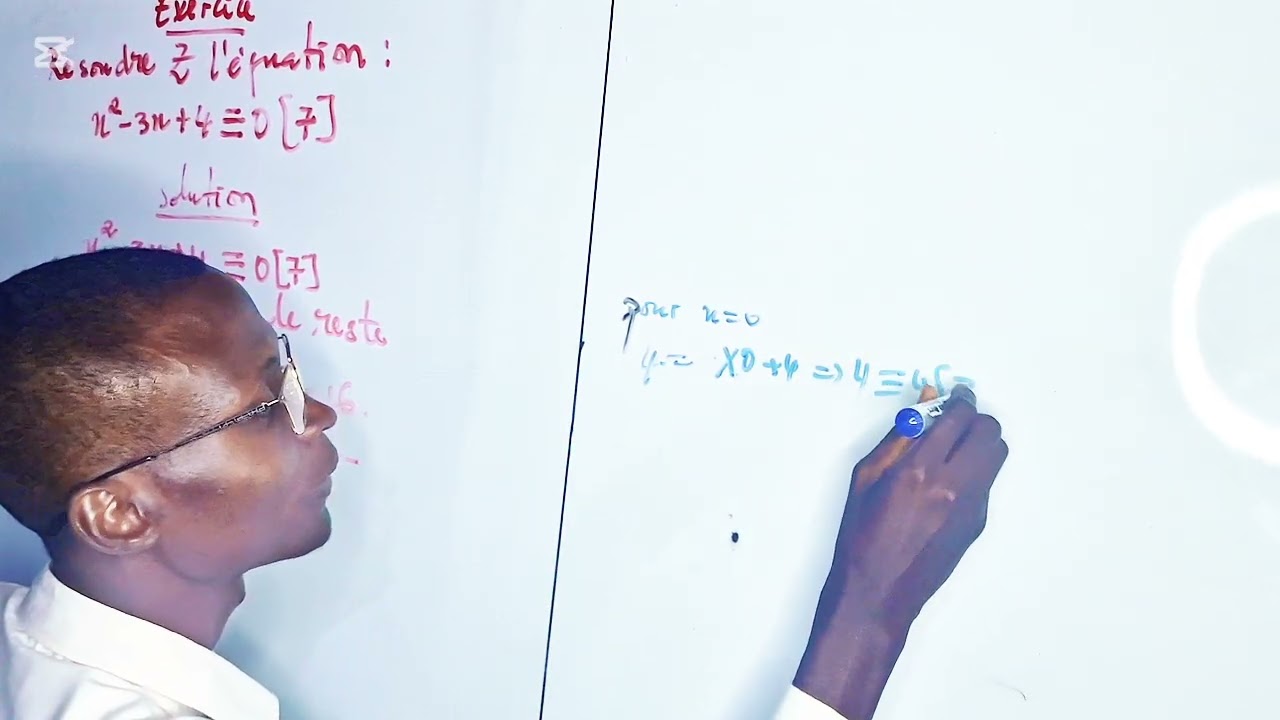 Exercice
Resoudre Z l'équation :
x²-3x+4≡0[7]
solution
x² ≡0[7]
le reste
6.
pour x=0
X0+4 => 4 ≡ 4[